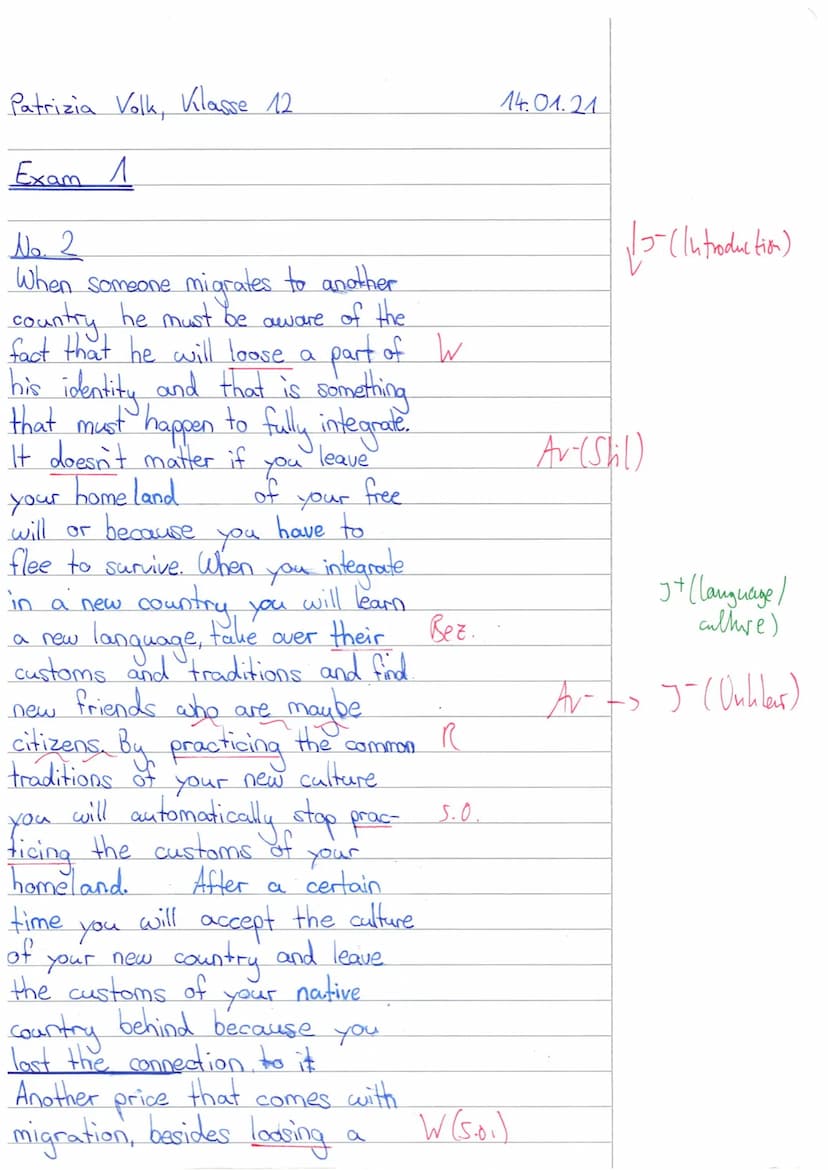 Patrizia Volk, Klasse 12 14.01.21
Exam 1
No. 2 J- (Introduction)
When someone migrates to another
country he must be aware of the
fact that he will loose a part of W
his identity and that is something
that must happen to fully integrate.
It doesn't matter if you leave Av-(Stil)
your homeland of your free
will or because you have to
flee to survive. When you integrate
in a new country you will learn J+ (language/
a new language, take over their Bez. culture)
customs and traditions and find
new friends who are maybe Av- -> J- (Unklar)
citizens. By practicing the common R
traditions of your new culture
you will automatically stop prac- s.o.
ticing the customs of your
homeland. After a certain
time you will accept the culture
of your new country and leave
the customs of your native
country behind because you
last the connection to it
Another price that comes with
migration, besides loosing a W (s.o.)